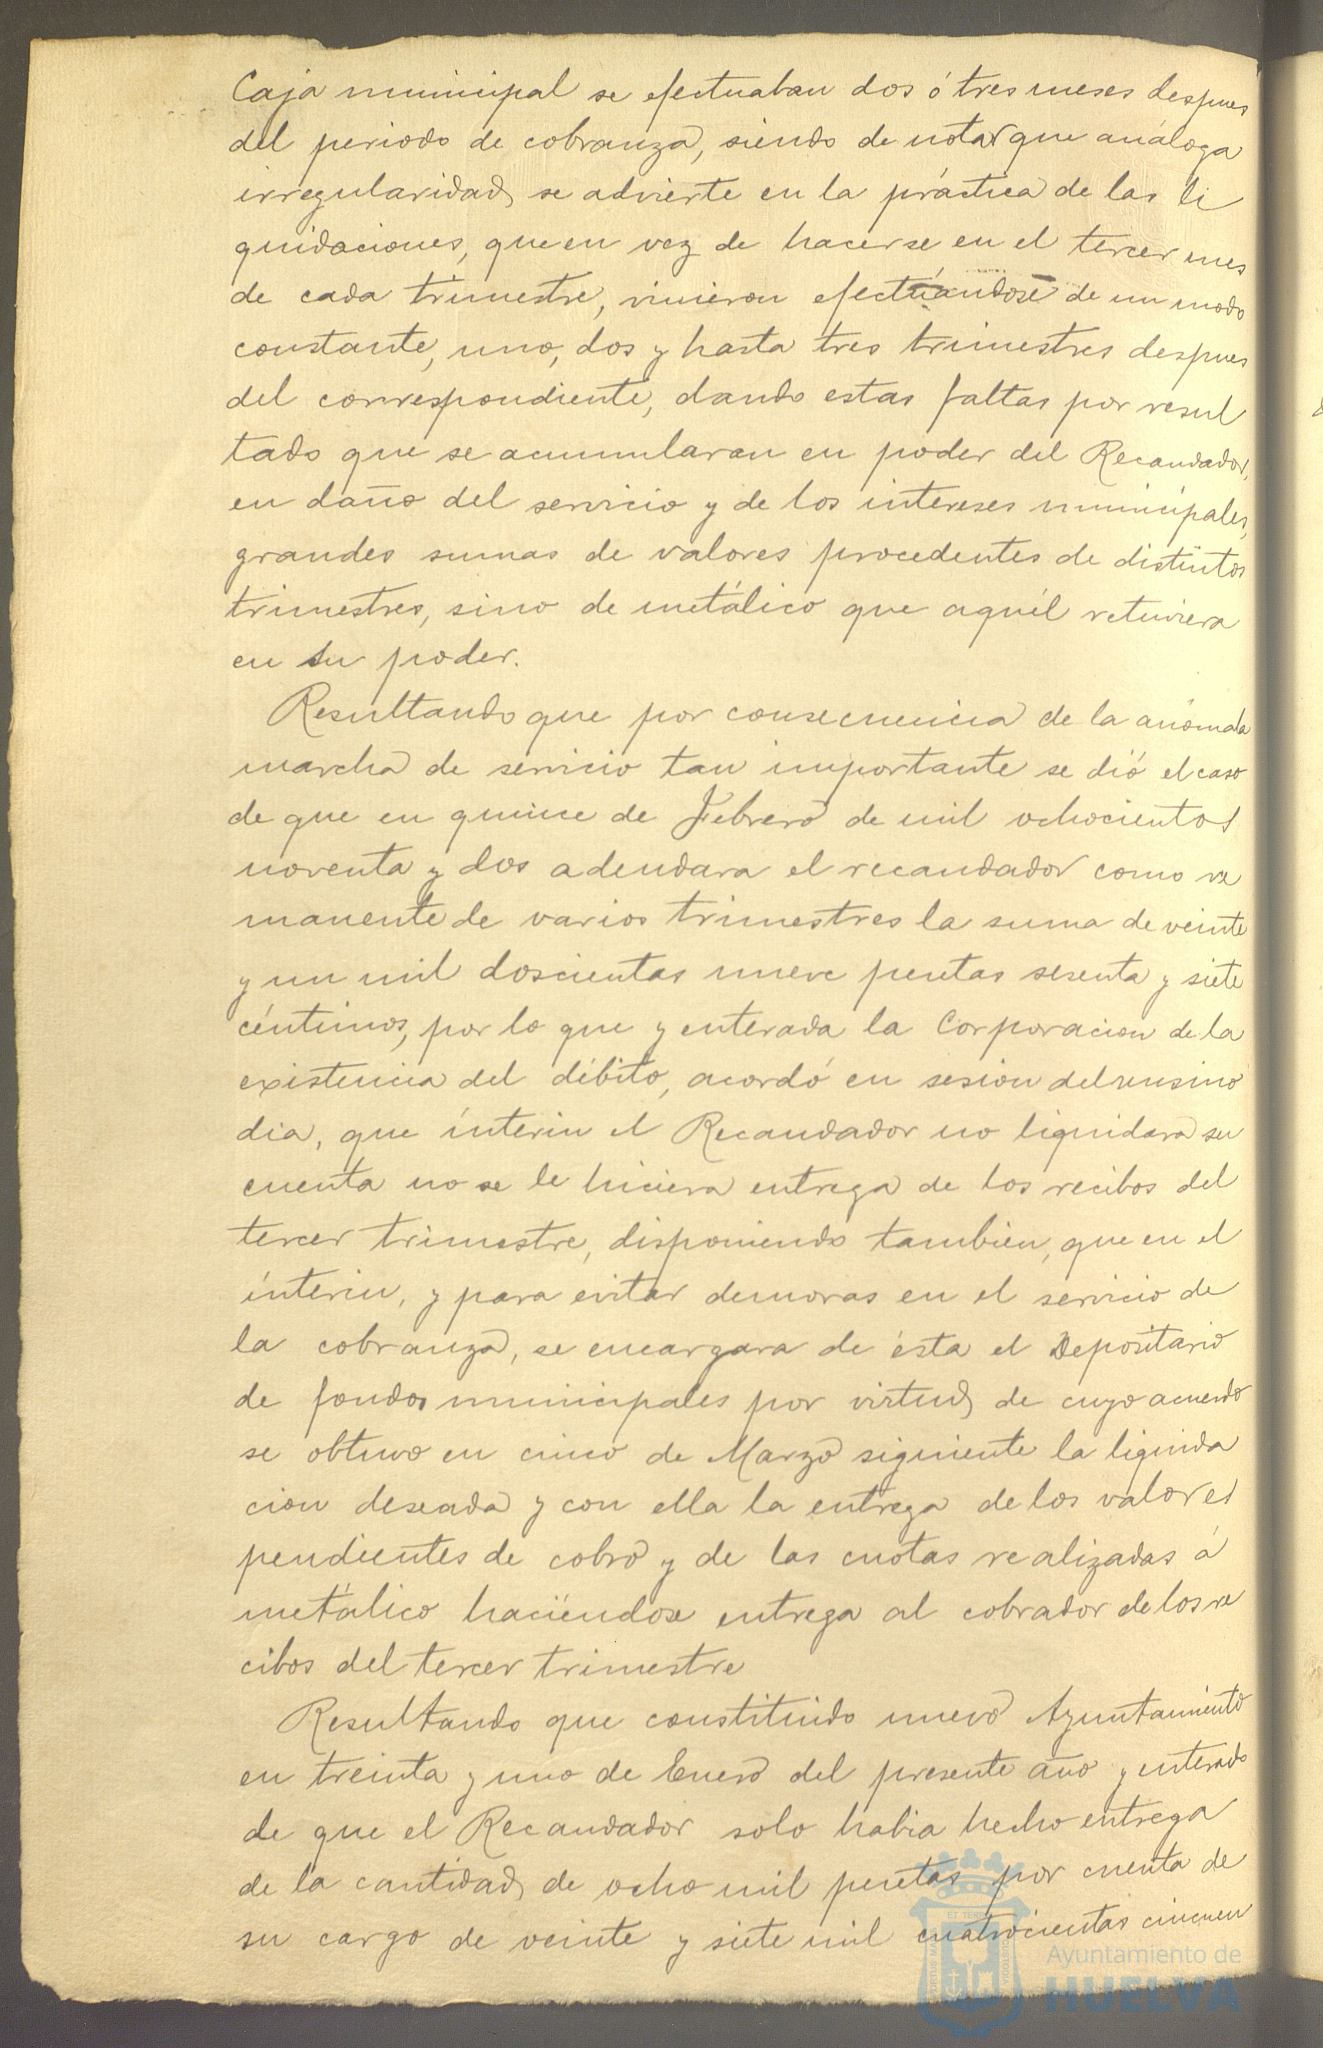 Caja municipal se efectuaban dos ó tres meses despues
del periodo de cobranza, siendo de notar que análoga
irregularidad se advierte en la práctica de las li
quidaciones, que en vez de hacerse en el tercer mes
de cada trimestre, vinieron efectuándose de un modo
constante, uno, dos y hasta tres trimestres despues
del correspondiente, dando estas faltas por resul
tado que se acumularan en poder del Recaudador,
en daño del servicio y de los intereses municipales,
grandes sumas de valores procedentes de distintos
trimestres, sino de metálico que aquél retuviera
en su poder.
Resultando que por consecuencia de la anómala
marcha de servicio tan importante se dió el caso
de que en quince de Febrero de mil ochocientos
noventa y dos adeudara el recaudador como re
manente de varios trimestres la suma de veinte
y un mil doscientas nueve pesetas sesenta y siete
céntimos, por lo que y enterada la Corporacion de la
existencia del débito, acordó en sesion del mismo
dia, que ínterin el Recaudador no liquidara su
cuenta no se le hiciera entrega de los recibos del
tercer trimestre, disponiendo tambien, que en el
ínterin, y para evitar demoras en el servicio de
la cobranza, se encargara de ésta el Depositario
de fondos municipales por virtud de cuyo acuerdo
se obtuvo en cinco de Marzo siguiente la liquida
cion deseada y con ella la entrega de los valores
pendientes de cobro y de las cuotas realizadas á
metálico haciéndose entrega al cobrador de los re
cibos del tercer trimestre
Resultando que constituido nuevo Ayuntamiento
en treinta y uno de Enero del presente año y enterado
de que el Recaudador solo habia hecho entrega
de la cantidad de ocho mil pesetas por cuenta de
su cargo de veinte y siete mil cuatrocientas cincuen
Ayuntamiento de
HUELVA